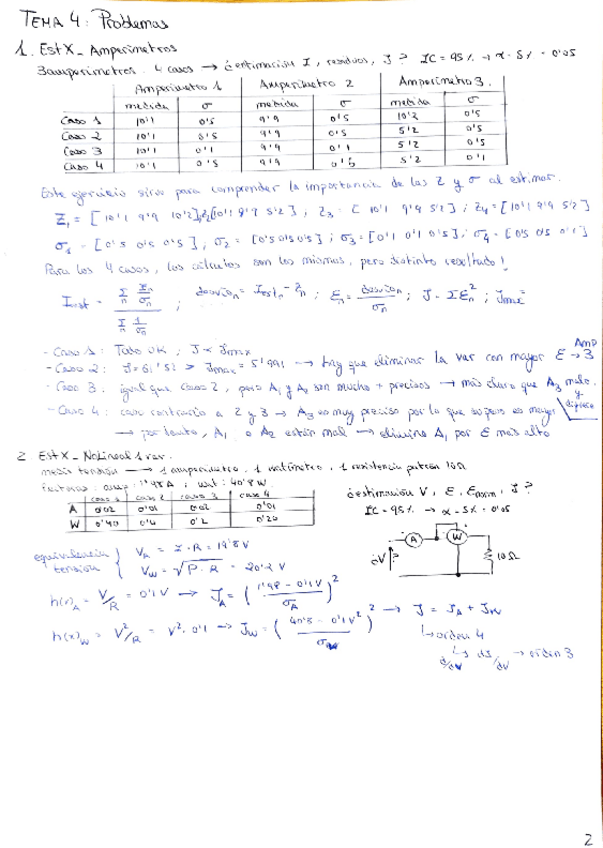 TEMA 4: Problemas
1. EstX_Amperimetros
3 amperimetros. 4 casos → ¿estimación I, residuos, J? IC = 95% → α = 5% = 0'05
Amperimetro 1 Amperimetro 2 Amperimetro 3.
medida σ medida σ medida σ
Caso 1 10'1 0'5 9'9 0'5 10'2 0'5
Caso 2 10'1 0'5 9'9 0'5 5'2 0'5
Caso 3 10'1 0'1 9'9 0'1 5'2 0'5
Caso 4 10'1 0'5 9'9 0'5 5'2 0'1
Este ejercicio sirve para comprender la importancia de las Z y σ al estimar.
Z₁ = [10'1 9'9 10'2]; Z₂ [10'1 9'9 5'2]; Z₃ = [10'1 9'9 5'2]; Z₄ = [10'1 9'9 5'2]
σ₁ = [0'5 0'5 0'5]; σ₂ = [0'5 0'5 0'5]; σ₃ = [0'1 0'1 0'5]; σ₄ = [0'5 0'5 0'1]
Para los 4 casos, los cálculos son los mismos, pero distinto resultado!
I_est = ; desvío_n = I_est_n - Z_n; E_n = desvío_n / σ_n; J = ΣE_n²; J_max
- Caso 1: Todo OK; J < Jmax
- Caso 2: J = 61'52 > Jmax = 5'991 → Hay que eliminar la var con mayor E → Amp 3
- Caso 3: igual que caso 2, pero A₁ y A₂ son mucho + precisos → más claro que A₃ malo. y
- Caso 4: caso contrario a 2 y 3 → A₃ es muy preciso por lo que su peso es mayor
→ por tanto, A₁ o A₂ están mal → elimino A₁ por E más alto
2 EstX_NoLineal 1 var.
medir tensión → 1 amperimetro, 1 vatímetro, 1 resistencia patrón 10Ω
lecturas: amp: 1'98 A; wat: 40'8 W
caso 1 caso 2 caso 3 caso 4
A 0'02 0'01 0'02 0'01
W 0'40 0'4 0'2 0'20
¿estimación V, E, E_norm, J?
IC = 95% → α = 5% = 0'05
A W 10Ω
¿V?
equivalencia tensión { V_A = I · R = 19'8 V
V_W = √(P · R) = 20'2 V
h(x)_A = V/R = 0'1 V → J_A = ((1'98 - 0'1 V) / σ_A)²
h(x)_W = V²/R = V² · 0'1 → J_W = ((40'8 - 0'1 V²) / σ_W)² → J = J_A + J_W
↳ orden 4
↳ d/dV dJ/dV → orden 3
2